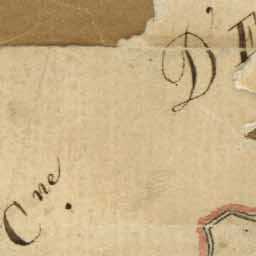 D'E
Cne.